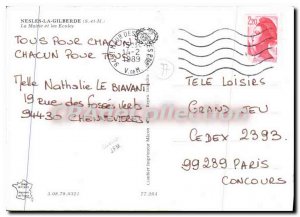 NESLES-LA-GILBERDE (S.-et-M.)
La Mairie et les Ecoles
TOUS POUR CHACUN
CHACUN POUR TOUS
Melle Nathalie LE BIAVANT
19 rue des fossés Verts
94430 CHENNEVIERES
24-2
1989
2,20
TELE LOISIRS
GRAND JEU
CEDEX 2393
99289 PARIS
CONCOURS